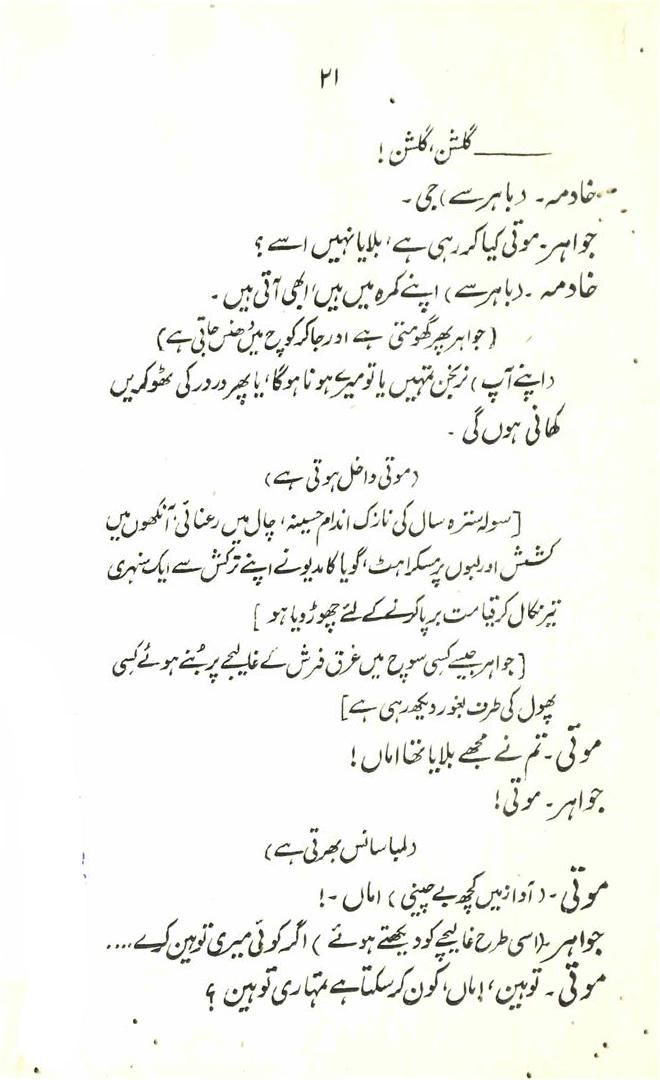 ۲۱
——— گلشن، گلشن !
خادمہ۔ (باہر سے) جی۔
جواہر۔ موتی کیا کر رہی ہے، بلایا نہیں اسے ؟
خادمہ۔ (باہر سے) اپنے کمرہ میں ہیں، ابھی آتی ہیں۔
(جواہر پھر گھومتی ہے اور جا کر کوچ میں دھنس جاتی ہے)
(اپنے آپ) نرنجن تمہیں یا تو میرے ہونا ہوگا، یا پھر در در کی ٹھوکریں
کھانی ہوں گی۔
(موتی داخل ہوتی ہے)
[سولہ سترہ سال کی نازک اندام حسینہ، چال میں رعنائی، آنکھوں میں
کشش اور لبوں پر مسکراہٹ، گویا کامدیو نے اپنے ترکش سے ایک سنہری
تیر نکال کر قیامت برپا کرنے کے لئے چھوڑ دیا ہو]
[جواہر جیسے کسی سوچ میں غرق فرش کے غالیچے پر بُنے ہوئے کسی
پھول کی طرف بغور دیکھ رہی ہے]
موتی۔ تم نے مجھے بلایا تھا اماں !
جواہر۔ موتی !
(لمبا سانس بھرتی ہے)
موتی۔ (آواز میں کچھ بے چینی) اماں ۔!
جواہر۔ (اسی طرح غالیچے کو دیکھتے ہوئے) اگر کوئی میری توہین کرے ....
موتی۔ توہین، اماں، کون کر سکتا ہے تمہاری توہین ؟